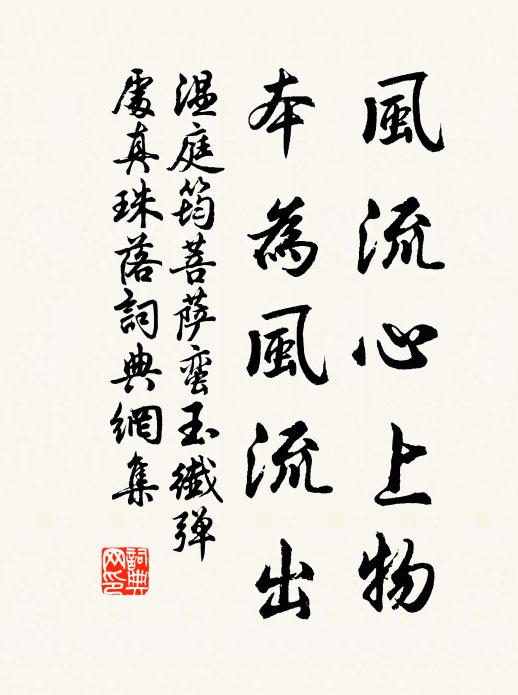 風流心上物
本為風流出
温庭筠菩薩蛮玉纖弹
處真珠落詞典網集
詞典網印